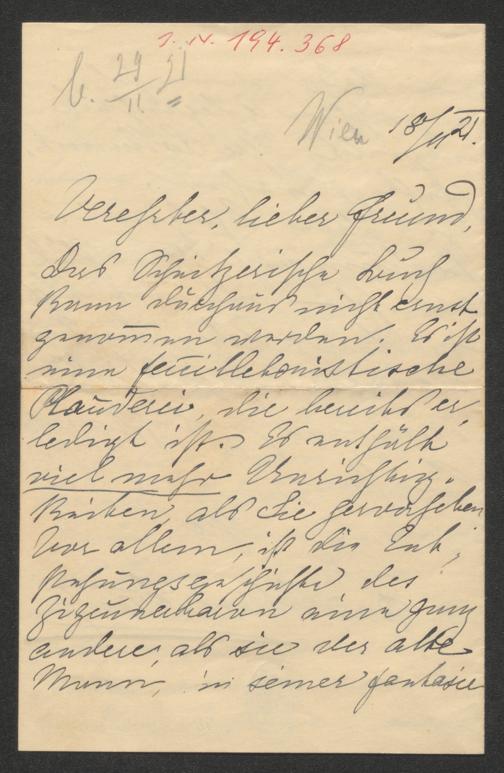 I.N. 194.368
b. 29/II 21
Wien
18/II 21.
Verehrter, lieber Freund,
Das Schnitzerische Buch
kann durchaus nicht ernst
genommen werden. Es ist
eine feuilletonistische
Plauderei, die bereits er„
ledigt ist. Es enthält
viel mehr Unrichtig„
keiten, als Sie hervorheben.
Vor allem, ist die Ent„
stehungsgeschichte des
Zigeunerbaron eine ganz
andere, als sie der alte
Mann, in seiner fantasie